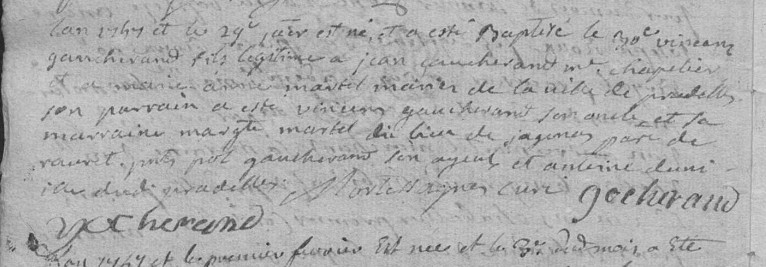 Lan 1767 et le 29e janr est né, et a esté Baptisé le 30e vincens
gaucherand fils légitime a jean gaucherand me chapelier
et marie anne martel mariés de la ville de pradelles
son parrain a esté vincens gaucherand son oncle et sa
marraine margte martel du lieu de jagonas parr de
rauret. pnts pol gaucherand son ayeul et antoine
dud pradelles. curé gocherand
gocherand
Lan 1767 et le premier fevrier Est nee et le 3e dud mois a Ete